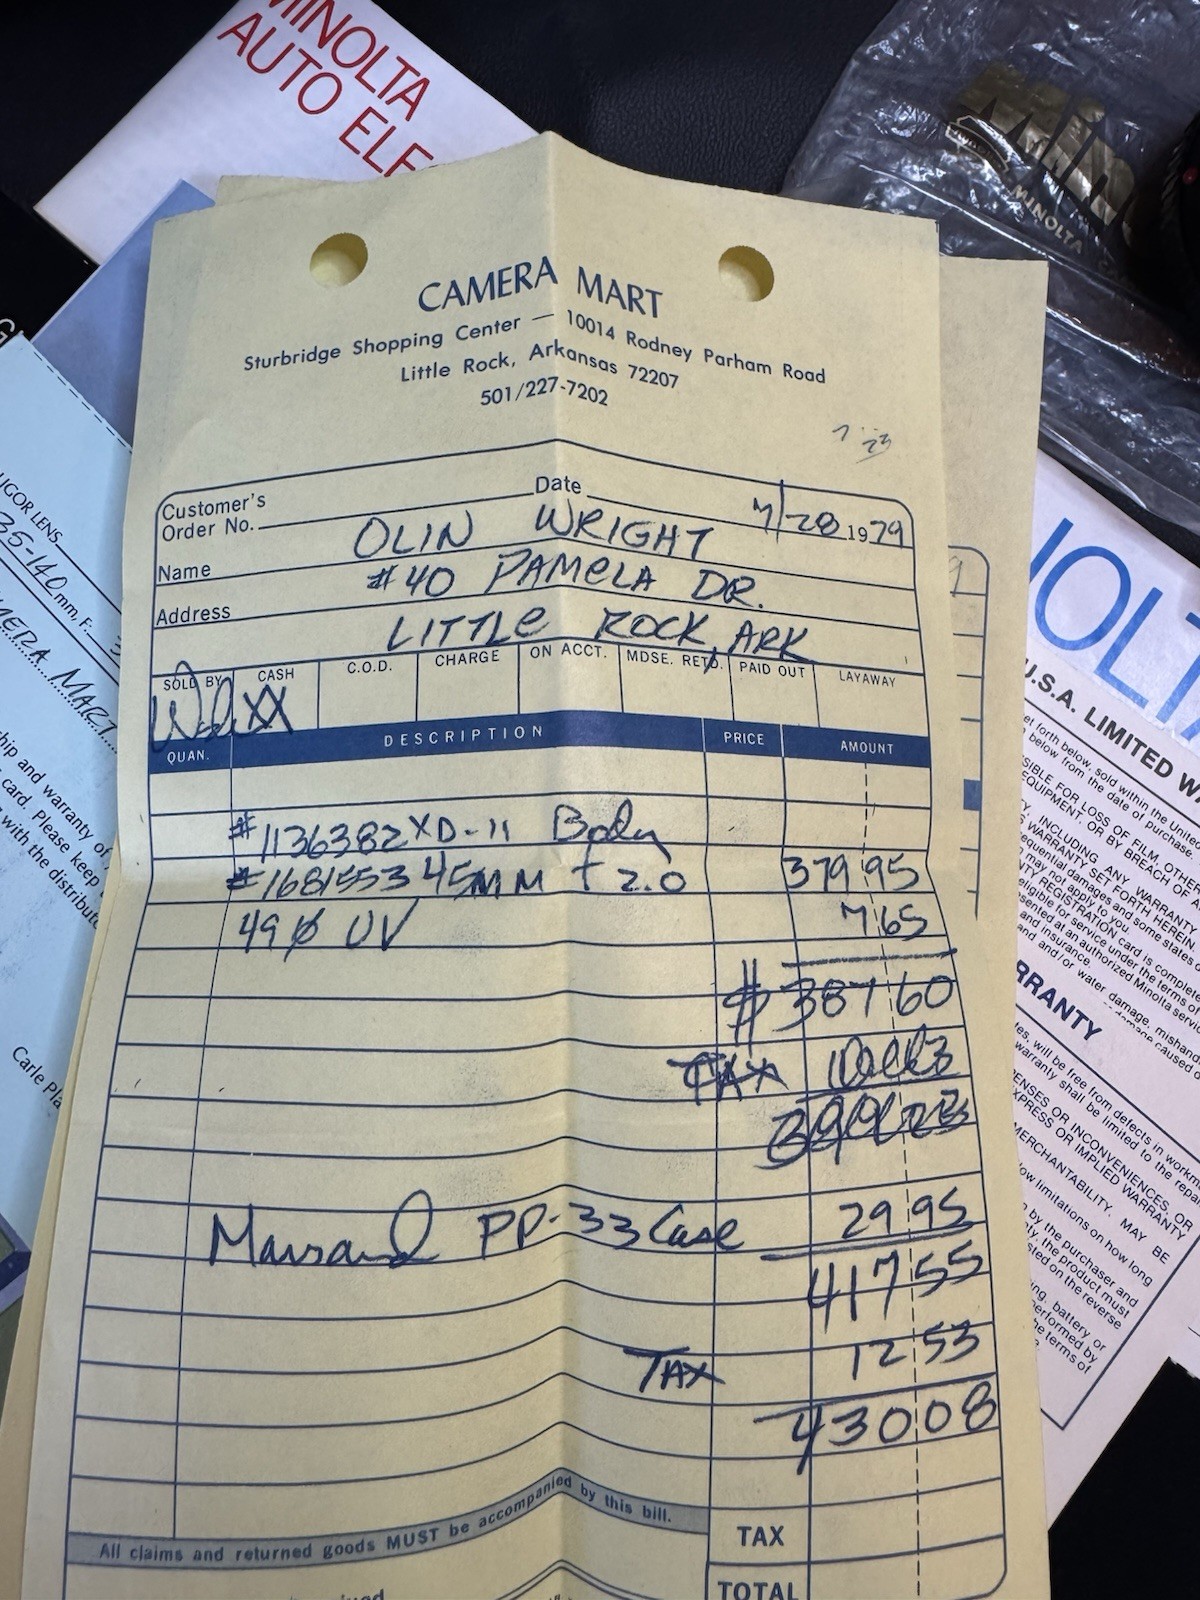 MINOLTA
AUTO ELE
Min
MINOLTA
CAMERA MART
Sturbridge Shopping Center — 10014 Rodney Parham Road
Little Rock, Arkansas 72207
501/227-7202
Customer's
Order No.
Date 7/28 1979
Name OLIN WRIGHT
Address #40 PAMELA DR.
LITTLE ROCK, ARK
SOLD BY CASH C.O.D. CHARGE ON ACCT. MDSE. RETD. PAID OUT LAYAWAY
XX
QUAN. DESCRIPTION PRICE AMOUNT
#1136382 XD-11 Body
#1681553 45MM f 2.0 379 95
49 ø UV 7 65
$ 387 60
TAX
Marsand PP-33 Case 29 95
417 55
TAX 12 53
430 08
All claims and returned goods MUST be accompanied by this bill.
TAX
TOTAL
IGOR LENS
35-140 mm, F: 3
MERA MART
hip and warranty of
card. Please keep
with the distribut
Carle Pla
NOLT
U.S.A. LIMITED W
et forth below, sold within the United
below from the date of purchase.
SIBLE FOR LOSS OF FILM, OTHER
EQUIPMENT, OR BY BREACH OF A
Y, INCLUDING ANY WARRANTY
S WARRANTY SET FORTH HEREIN.
sequential damages and some states
may not apply to you.
TY REGISTRATION card is complete
eligible for service under the terms of
sented at an authorized Minolta servic
and insurance.
and/or water damage, mishand
damage caused o
RRANTY
es, will be free from defects in workm
warranty shall be limited to the repa
PENSES OR INCONVENIENCES, OR
EXPRESS OR IMPLIED WARRANTY
MERCHANTABILITY. MAY BE
low limitations on how long
by the purchaser and
ty, the product must
sted on the reverse
ing, battery, or
performed by
he terms of